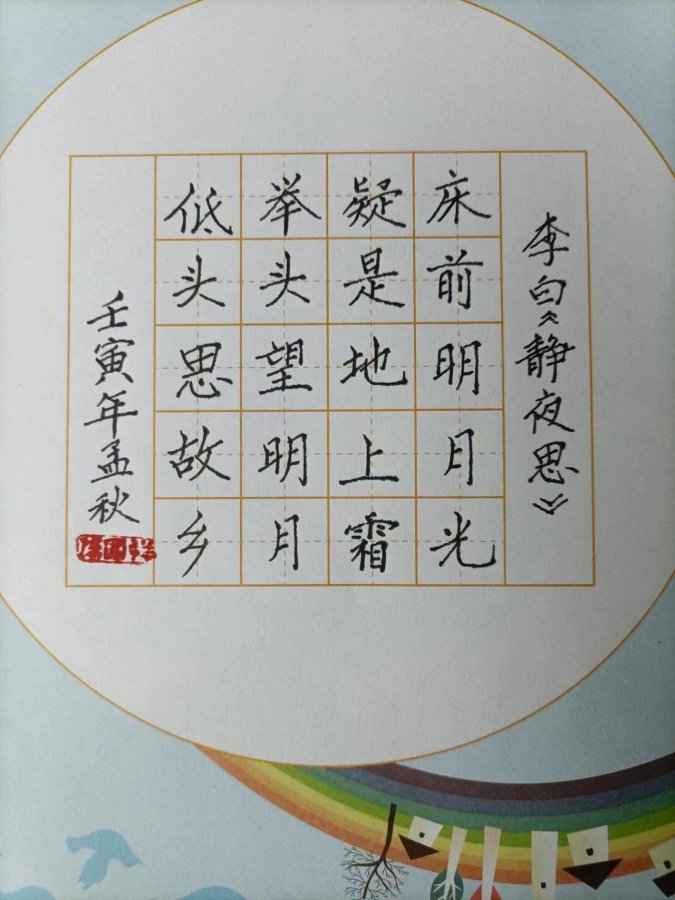 李白《静夜思》
床前明月光
疑是地上霜
举头望明月
低头思故乡
壬寅年孟秋